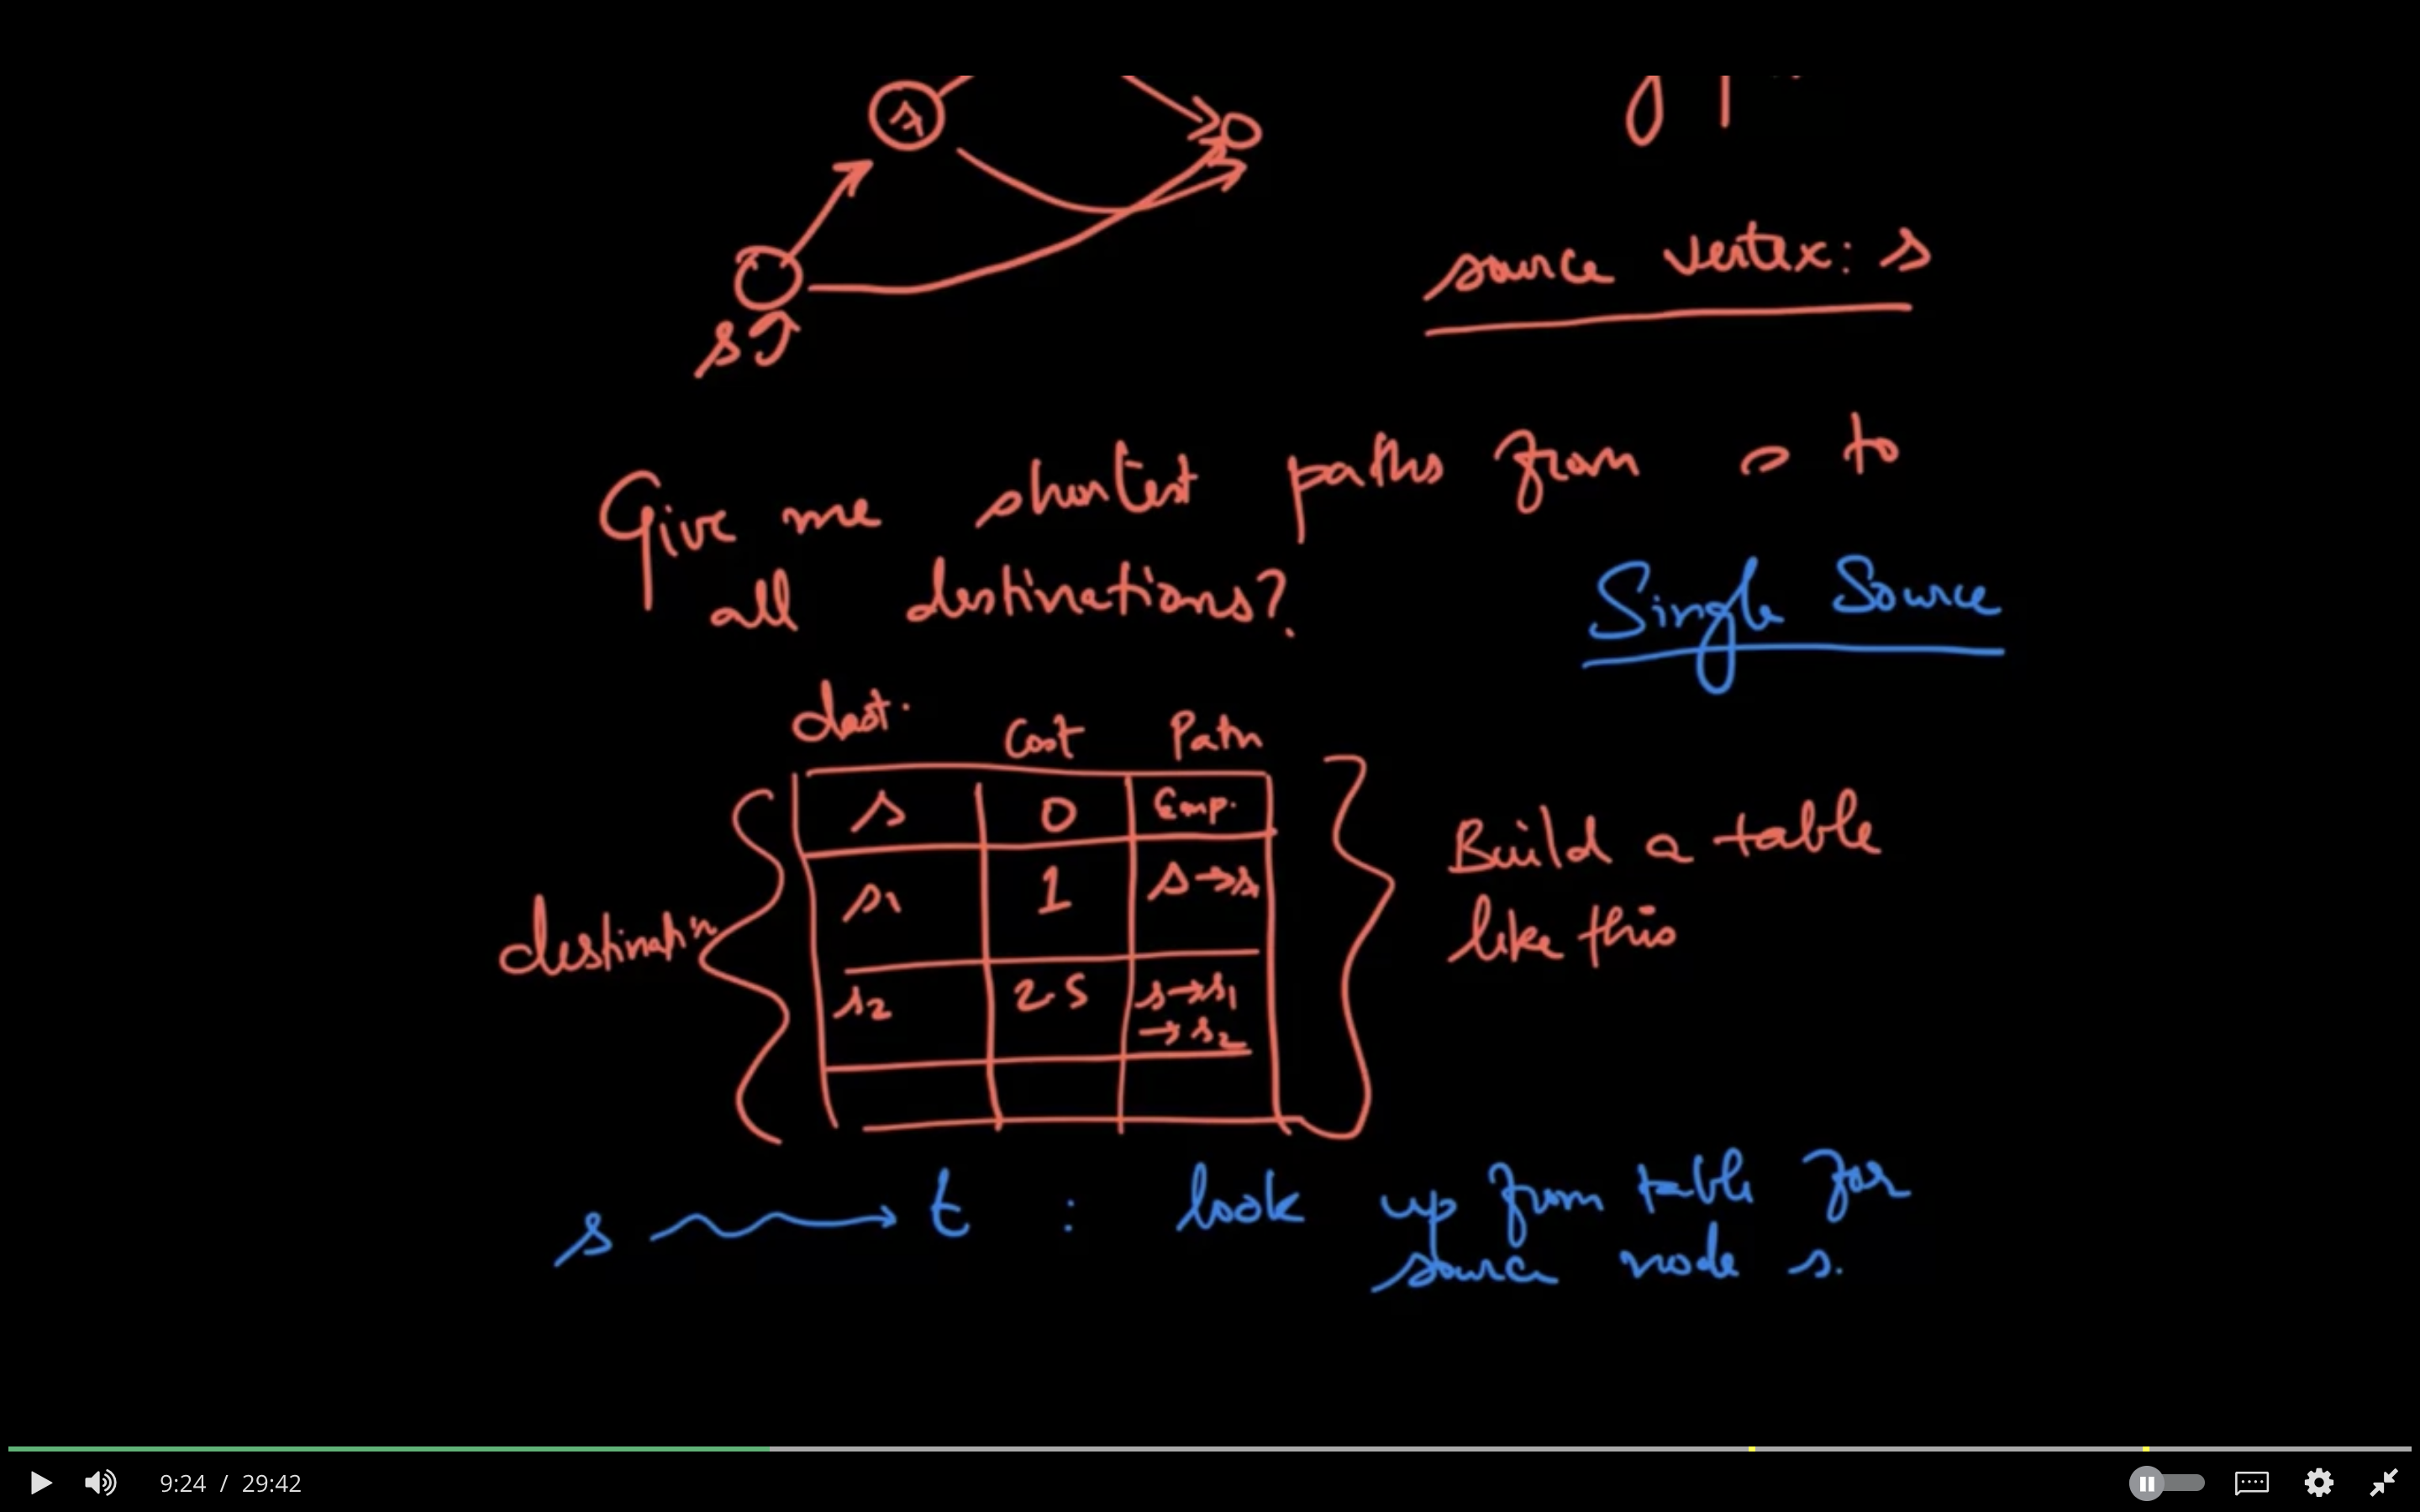 s
source vertex: s
Give me shortest paths from s to
all destinations?
Single Source
dest. Cost Path
s 0 Emp.
s1 1 s→s1
s2 2.5 s→s1
→s2
destination
Build a table
like this
s t : look up from table for
source node s.
9:24 / 29:42